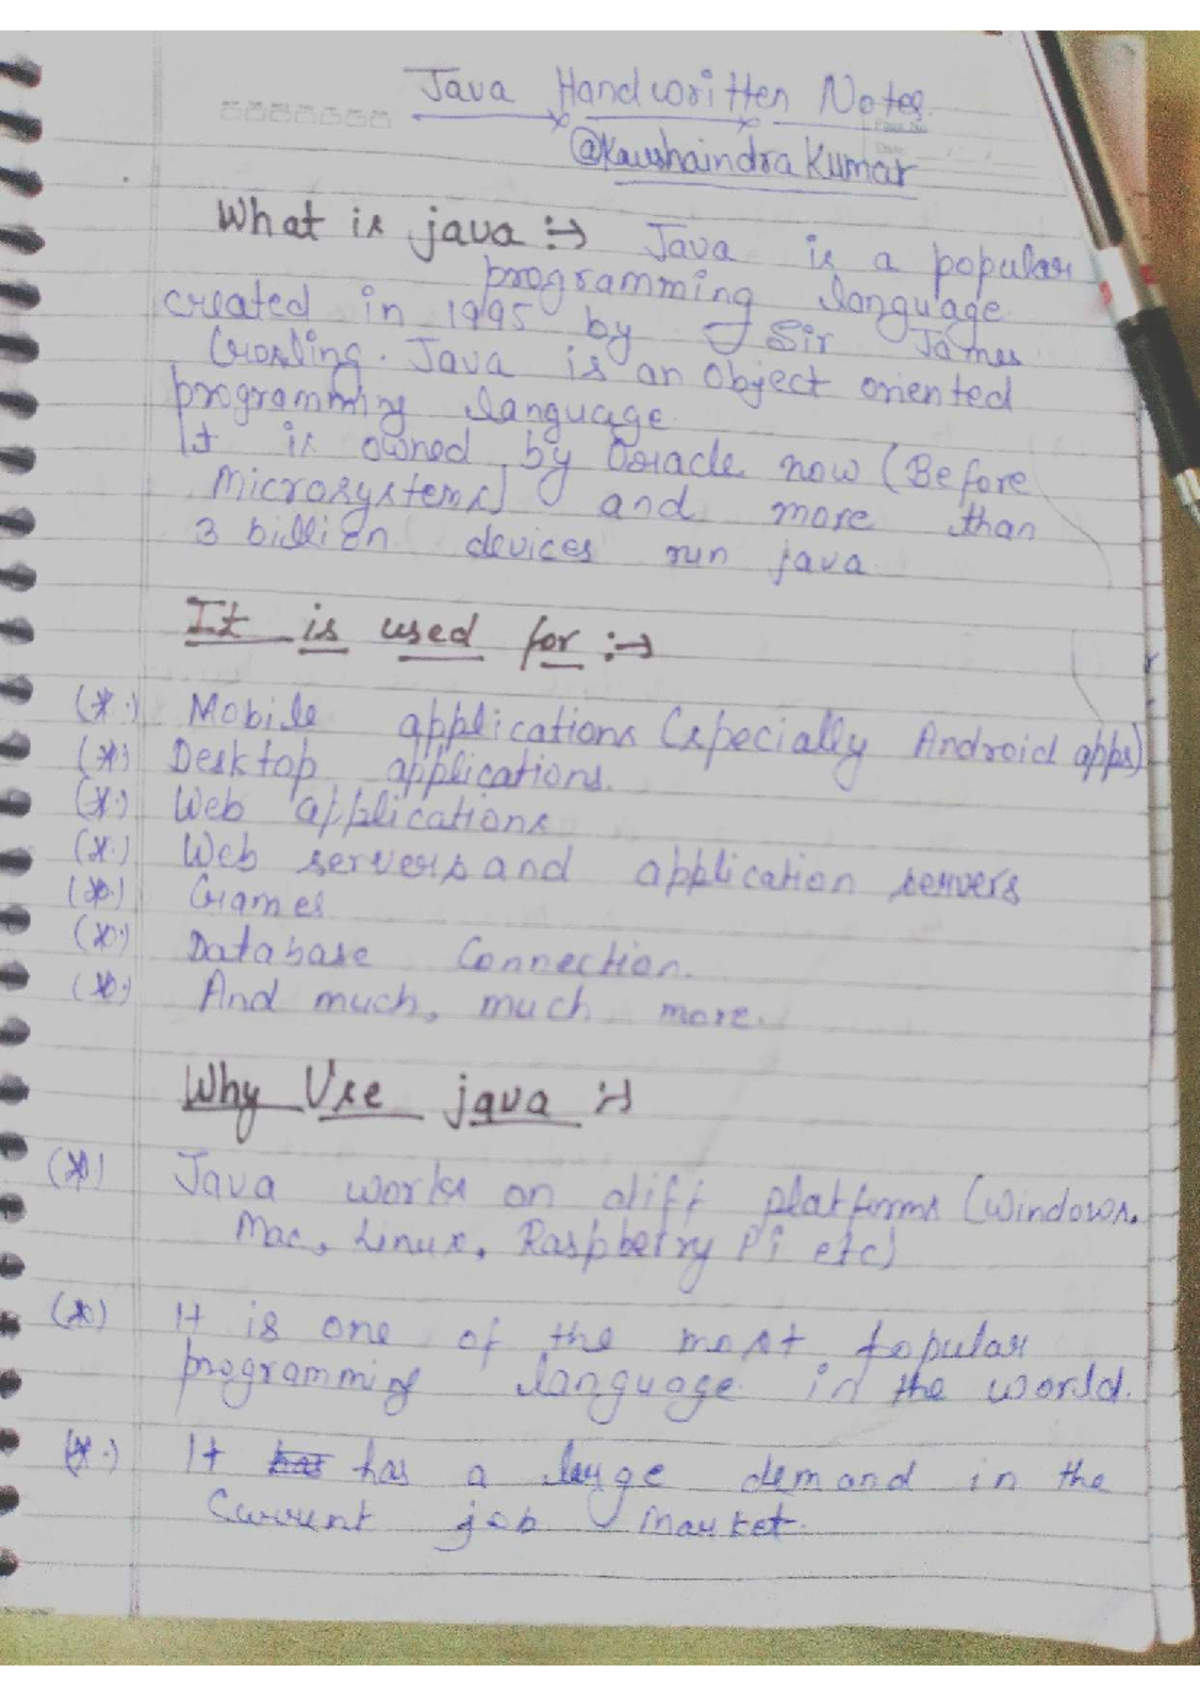 Java Handwritten Notes
@Kaushaindra Kumar
What is java :→ Java is a popular
programming language
created in 1995 by Sir James
Gosling. Java is an object oriented
programming language.
It is owned by Oracle now (Before
Microsystems) and more than
3 billion devices run java
It is used for :→
(*.) Mobile applications (specially Android apps)
(*.) Desktop applications.
(*.) Web applications
(*.) Web servers and application servers
(*.) Games
(*.) Database Connection.
(*.) And much, much more.
Why Use java :→
(*) Java works on diff platforms (Windows,
Mac, Linux, Raspberry Pi etc)
(*) It is one of the most popular
programming language in the world.
(*.) It has a large demand in the
Current job market.